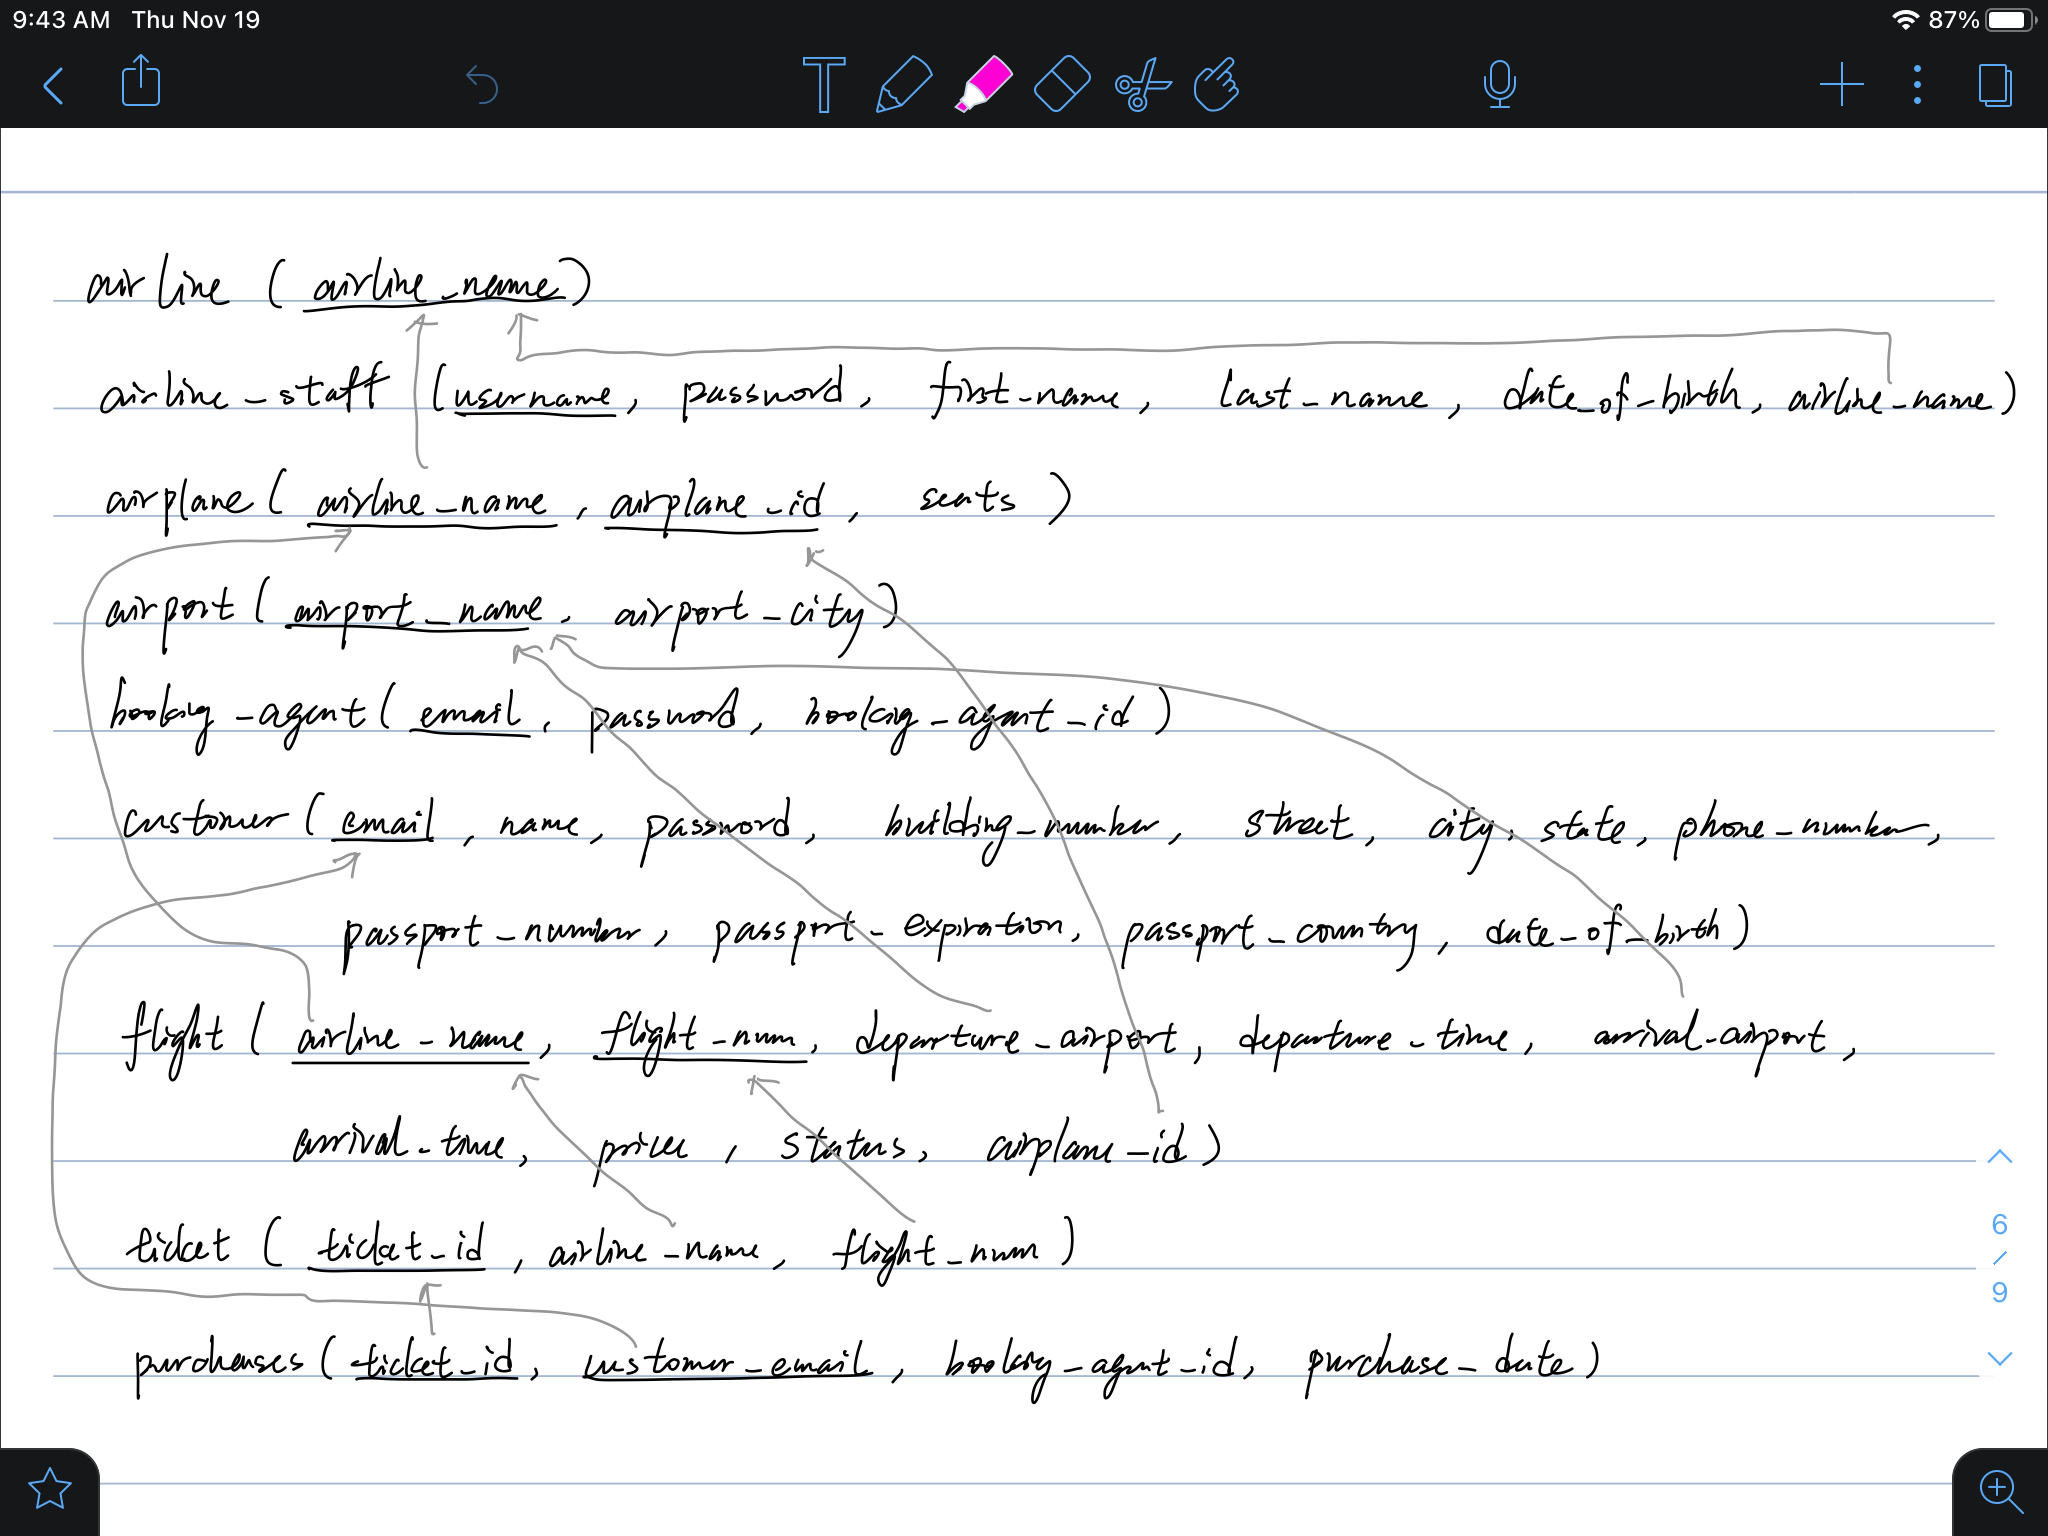 9:43 AM Thu Nov 19 87%
T
airline ( airline_name )
airline_staff ( username, password, first_name, last_name, date_of_birth, airline_name )
airplane ( airline_name, airplane_id, seats )
airport ( airport_name, airport_city )
booking_agent ( email, password, booking_agent_id )
customer ( email, name, password, building_number, street, city, state, phone_number,
passport_number, passport_expiration, passport_country, date_of_birth )
flight ( airline_name, flight_num, departure_airport, departure_time, arrival_airport,
arrival_time, price, status, airplane_id )
6
/
9
ticket ( ticket_id, airline_name, flight_num )
purchases ( ticket_id, customer_email, booking_agent_id, purchase_date )